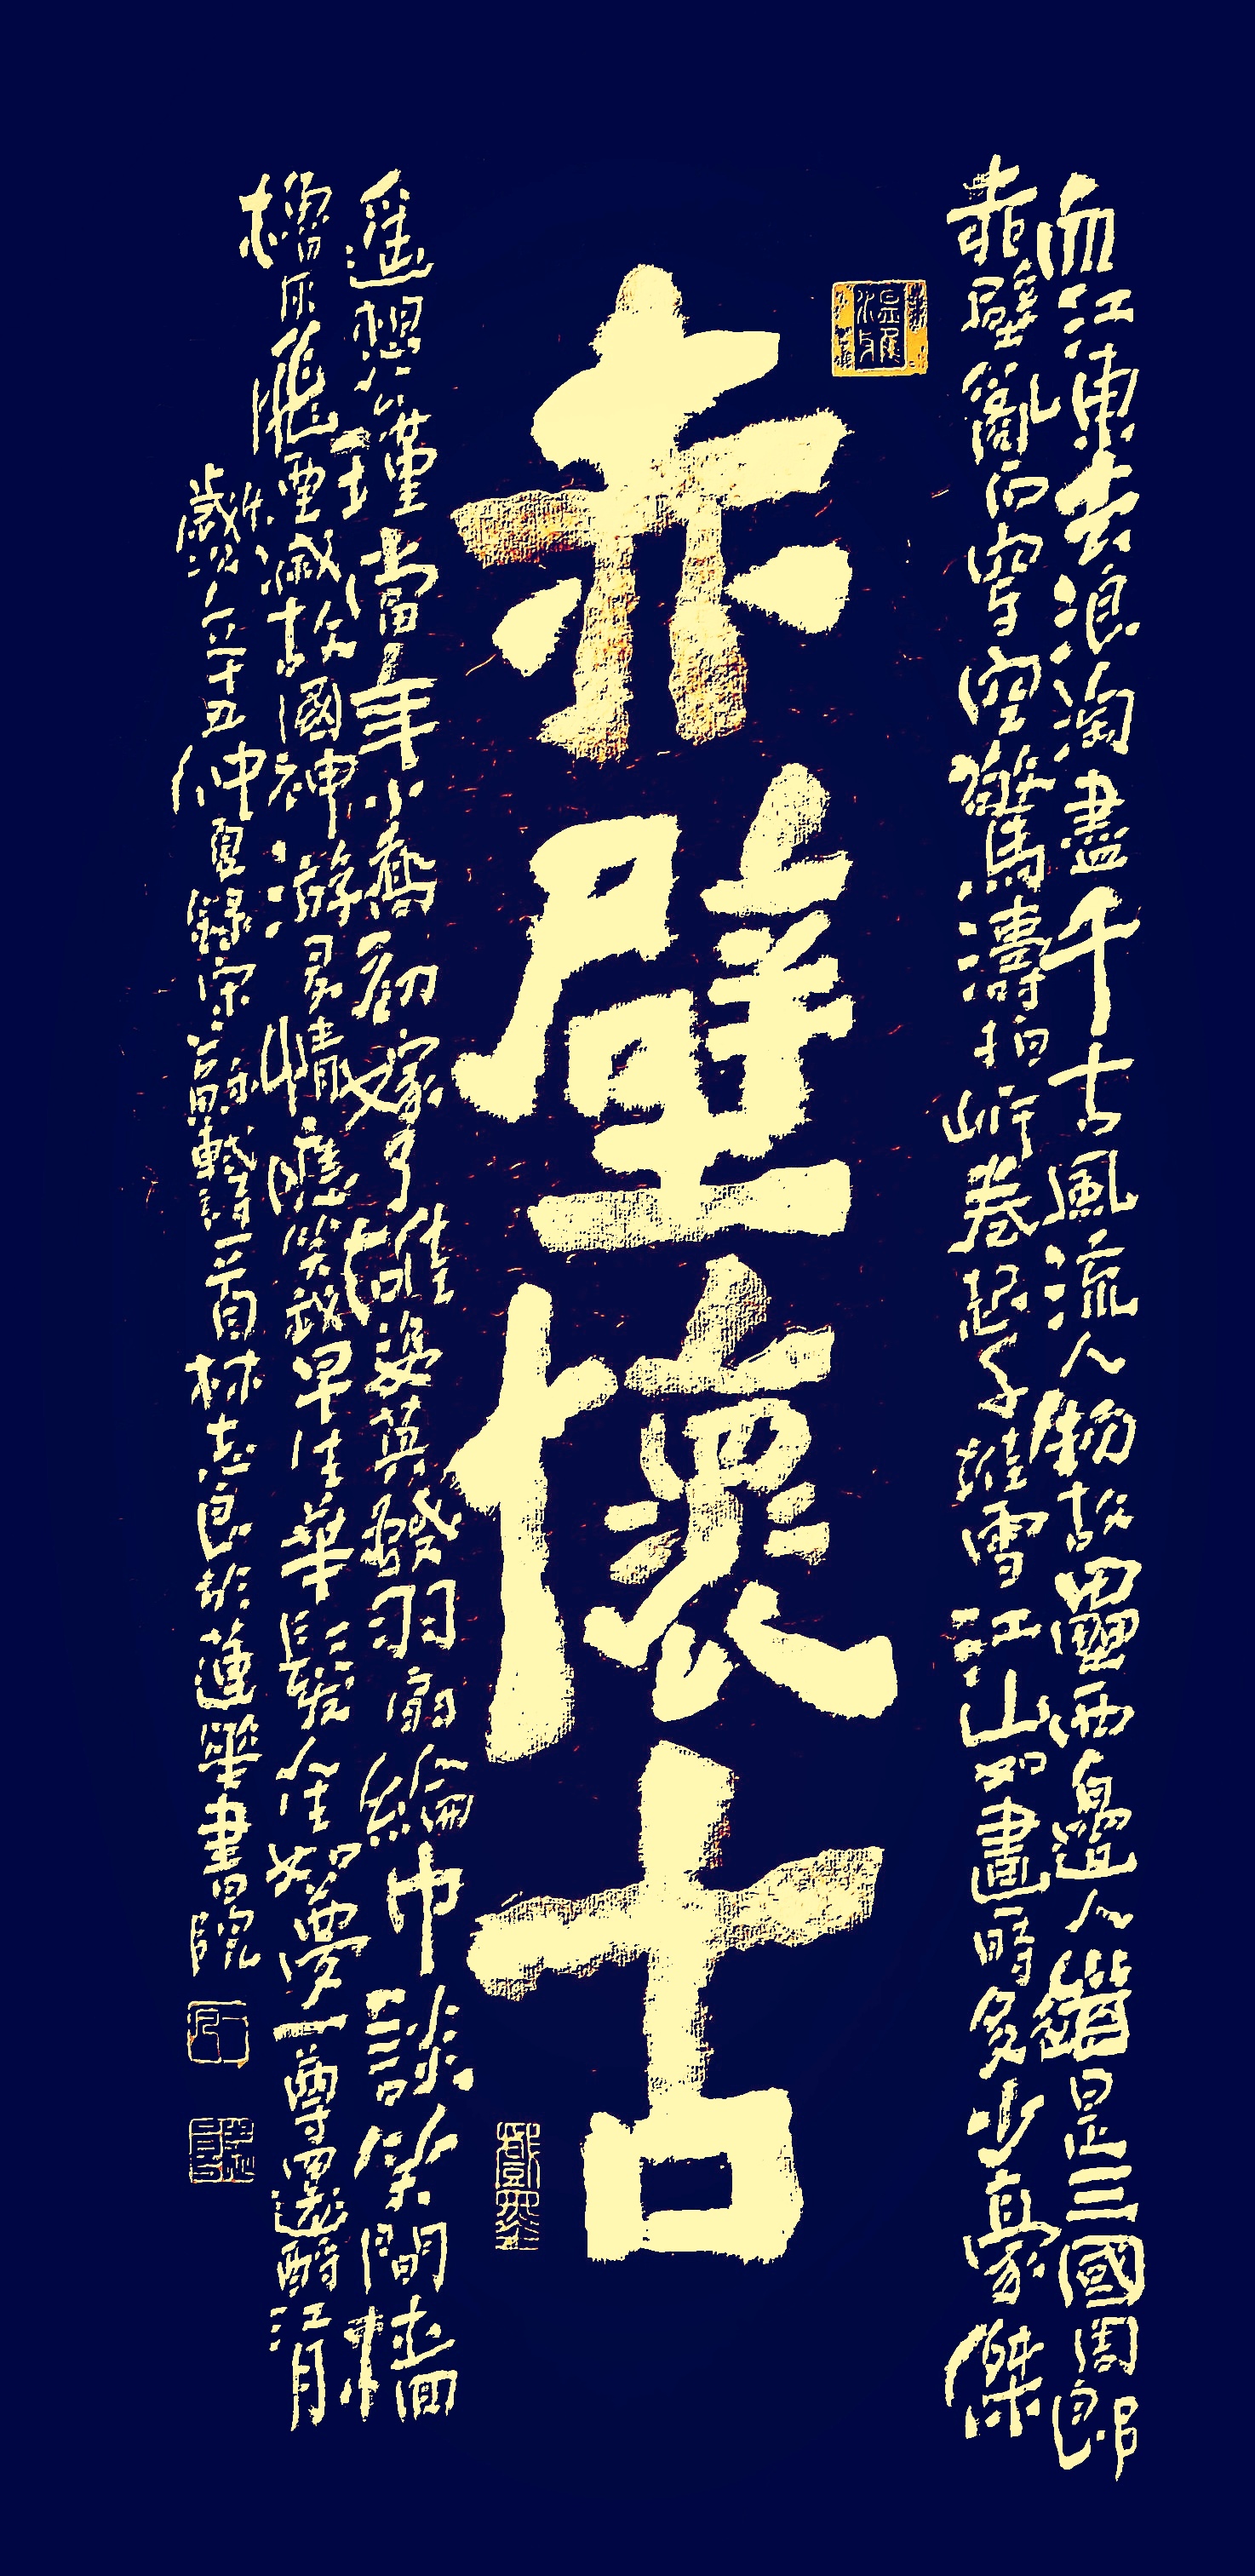 江東去浪淘盡千古風流人物故壘西邊人道是三國周郎
赤壁亂石穿空驚濤拍岸卷起千堆雪江山如畫一時多少豪傑
赤壁懷古
遙想公瑾當年小喬初嫁了雄姿英發羽扇綸巾談笑間檣
櫓灰飛煙滅故國神游多情應笑我早生華髮人生如夢一尊還酹江月
歲次十五仲夏錄宋蘇軾詞一首林志良於蓮華書院